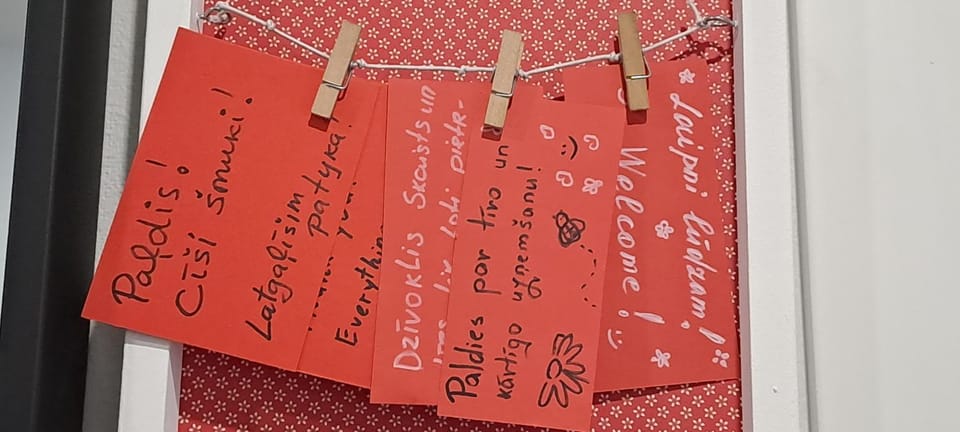 Paldis!
Cīši šmuki!
Latgalīšim
patyka!
Everything
Dzīvoklis Skaists un
ļoti pietr-
Paldies par tīro un
kārtīgo uzņemšanu!
Laipni lūdzam!
Welcome!